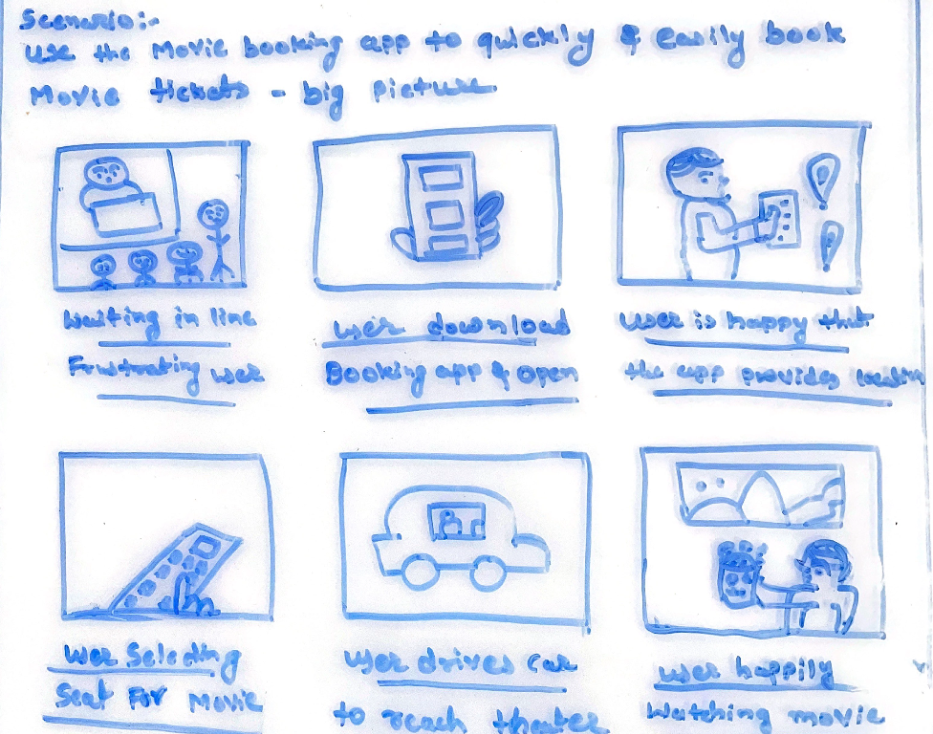 Scenario:-
Use the Movie booking app to quickly & easily book
Movie tickets - big picture
Waiting in line
Frustrating user
User download
Booking app & open
User is happy that
the app provides location
User Selecting
Seat For Movie
User drives car
to reach theater
User happily
Watching movie